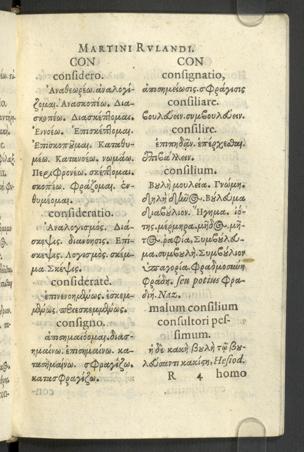 MARTINI RVLANDI.
CON
considero.
Ἀναθεωρέω. ἀναλογί-
ζομαι. Ἀνασκοπέω. Δια-
σκοπέω. Διασκέπτομαι.
Ἐννοέω. Ἐπισκέπτομαι.
Ἐπισκοπῶμαι. Καταθυ-
μέω. Κατανοέω. νωμάω.
Περιφρονέω. σκέπτομαι.
σκοπέω. Φράζομαι. ἐν-
θυμέομαι.
consideratio.
Ἀναλογισμὸς. Διά-
σκεψις. διανόησις. Ἐπί-
σκεψις. Λογισμός. σκέμ-
μα. Σκέψις.
consideratè.
ἐπινενοημένως. ἐσκεμ-
μένως. περιεσκεμμένως.
consigno.
ἀποσημαίνομαι. διαση-
μαίνω. ἐπισημαίνω. κα-
τασημαίνω. σφραγίζω.
κατασφραγίζω.
CON
consignatio,
ἀποσημείωσις. σφράγισις
consiliare.
βουλεύειν. συμβουλεύειν.
consilire.
ἐπιπηδᾶν. ἐπέρχεσθαι.
consilium.
Βουλή. Γνώμη.
διαβούλιον. Ἥγημα.
Συμβουλή. Συμβούλιον
Φραδμοσύνη
Φράδη. seu potius Φρα-
δὴ. Naz.
malum consilium
consultori pes-
simum.
ἡ δὲ κακὴ βουλὴ τῷ βου-
λεύσαντι κακίστη, Hesiod.
R 4 homo